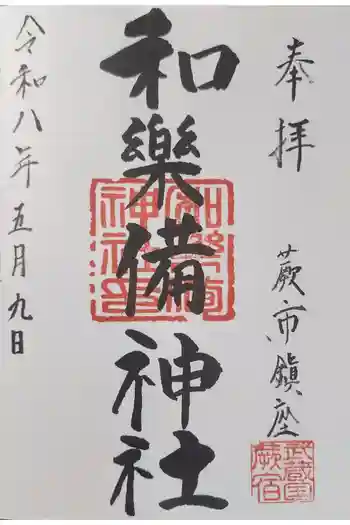 奉拝
蕨市鎮座
武蔵国
蕨宿
和樂備神社
和樂備
神社印
令和八年五月九日